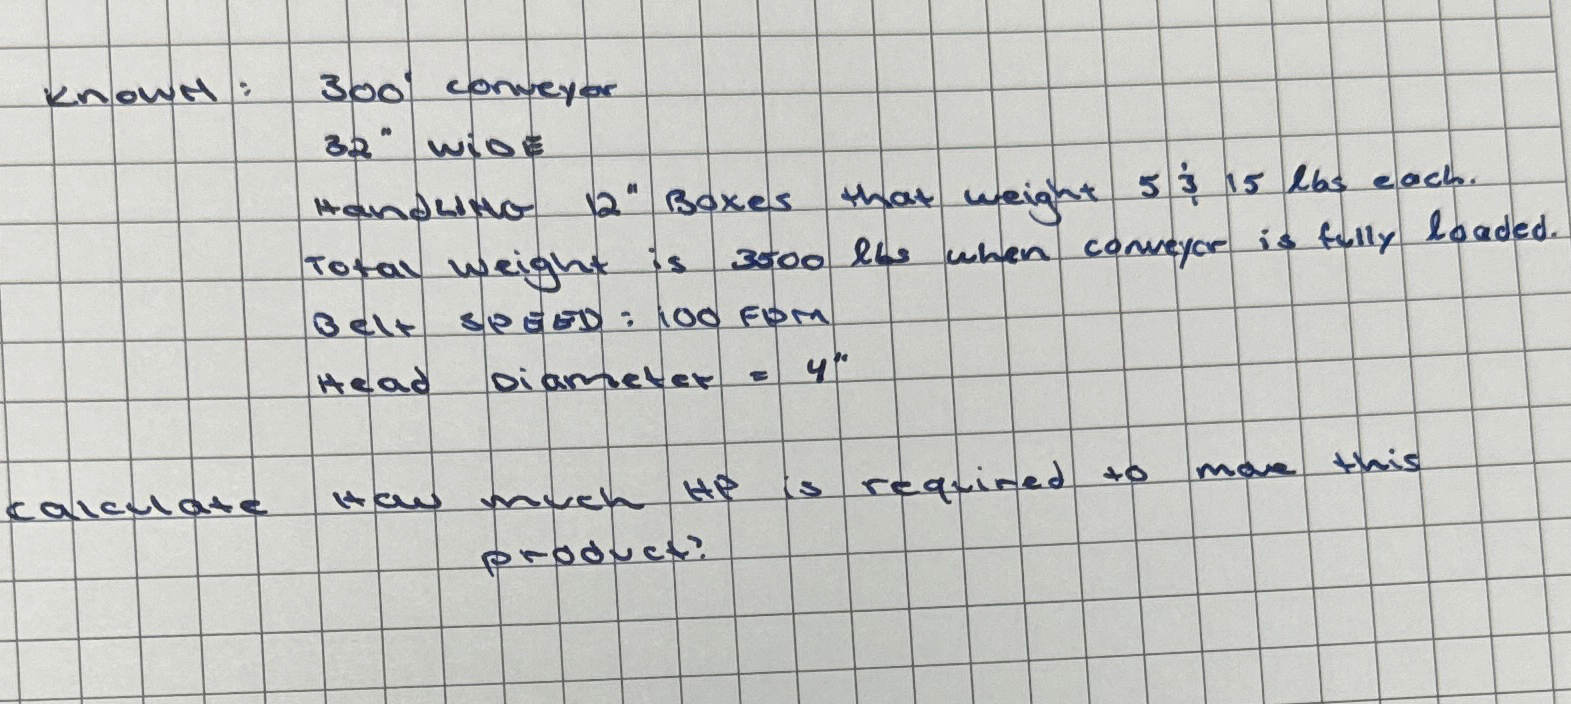 Known: 300' conveyor
32" WIDE
Handling 12" Boxes that weight 5 & 15 lbs each.
Total weight is 3500 lbs when conveyor is fully loaded.
Belt SPEED: 100 FPM
Head Diameter = 4"
Calculate How much HP is required to move this
product?